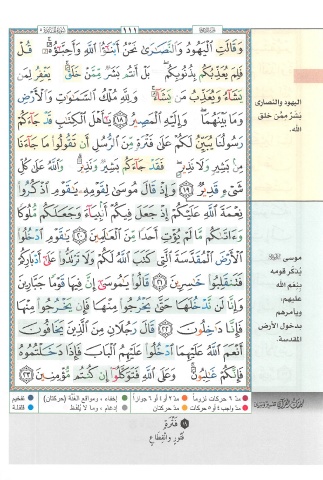 ١١١
وَقَالَتِ ٱلْيَهُودُ وَٱلنَّصَـٰرَىٰ نَحْنُ أَبْنَـٰٓؤُا۟ ٱللَّهِ وَأَحِبَّـٰٓؤُهُۥ ۚ قُلْ
فَلِمَ يُعَذِّبُكُم بِذُنُوبِكُم ۖ بَلْ أَنتُم بَشَرٌ مِّمَّنْ خَلَقَ ۚ يَغْفِرُ لِمَن
يَشَآءُ وَيُعَذِّبُ مَن يَشَآءُ ۚ وَلِلَّهِ مُلْكُ ٱلسَّمَـٰوَٰتِ وَٱلْأَرْضِ
وَمَا بَيْنَهُمَا ۖ وَإِلَيْهِ ٱلْمَصِيرُ ١٨ يَـٰٓأَهْلَ ٱلْكِتَـٰبِ قَدْ جَآءَكُمْ
رَسُولُنَا يُبَيِّنُ لَكُمْ عَلَىٰ فَتْرَةٍ مِّنَ ٱلرُّسُلِ أَن تَقُولُوا۟ مَا جَآءَنَا
مِنۢ بَشِيرٍ وَلَا نَذِيرٍ ۖ فَقَدْ جَآءَكُم بَشِيرٌ وَنَذِيرٌ ۗ وَٱللَّهُ عَلَىٰ كُلِّ
شَىْءٍ قَدِيرٌ ١٩ وَإِذْ قَالَ مُوسَىٰ لِقَوْمِهِۦ يَـٰقَوْمِ ٱذْكُرُوا۟
نِعْمَةَ ٱللَّهِ عَلَيْكُمْ إِذْ جَعَلَ فِيكُمْ أَنۢبِيَآءَ وَجَعَلَكُم مُّلُوكًا
وَءَاتَىٰكُم مَّا لَمْ يُؤْتِ أَحَدًا مِّنَ ٱلْعَـٰلَمِينَ ٢٠ يَـٰقَوْمِ ٱدْخُلُوا۟
ٱلْأَرْضَ ٱلْمُقَدَّسَةَ ٱلَّتِى كَتَبَ ٱللَّهُ لَكُمْ وَلَا تَرْتَدُّوا۟ عَلَىٰٓ أَدْبَارِكُمْ
فَتَنقَلِبُوا۟ خَـٰسِرِينَ ٢١ قَالُوا۟ يَـٰمُوسَىٰٓ إِنَّ فِيهَا قَوْمًا جَبَّارِينَ
وَإِنَّا لَن نَّدْخُلَهَا حَتَّىٰ يَخْرُجُوا۟ مِنْهَا فَإِن يَخْرُجُوا۟ مِنْهَا
فَإِنَّا دَٰخِلُونَ ٢٢ قَالَ رَجُلَانِ مِنَ ٱلَّذِينَ يَخَافُونَ
أَنْعَمَ ٱللَّهُ عَلَيْهِمَا ٱدْخُلُوا۟ عَلَيْهِمُ ٱلْبَابَ فَإِذَا دَخَلْتُمُوهُ
فَإِنَّكُمْ غَـٰلِبُونَ ۚ وَعَلَى ٱللَّهِ فَتَوَكَّلُوٓا۟ إِن كُنتُم مُّؤْمِنِينَ ٢٣
اليهود والنصارى
بشر ممن خلق
الله.
موسى
يُذكر قومه
بنعم الله
عليهم،
ويأمرهم
بدخول الأرض
المقدسة.
مدّ ٦ حركات لزوماً مدّ ٢ أو ٤ أو ٦ جوازاً إخفاء، ومواقع الغنّة (حركتان) تفخيم
مدّ واجب ٤ أو ٥ حركات مدّ حركتان إدغام، وما لا يُلفظ قلقلة
١٩ فَتْرَةٍ
فُتُورٍ وانْقِطَاعٍ